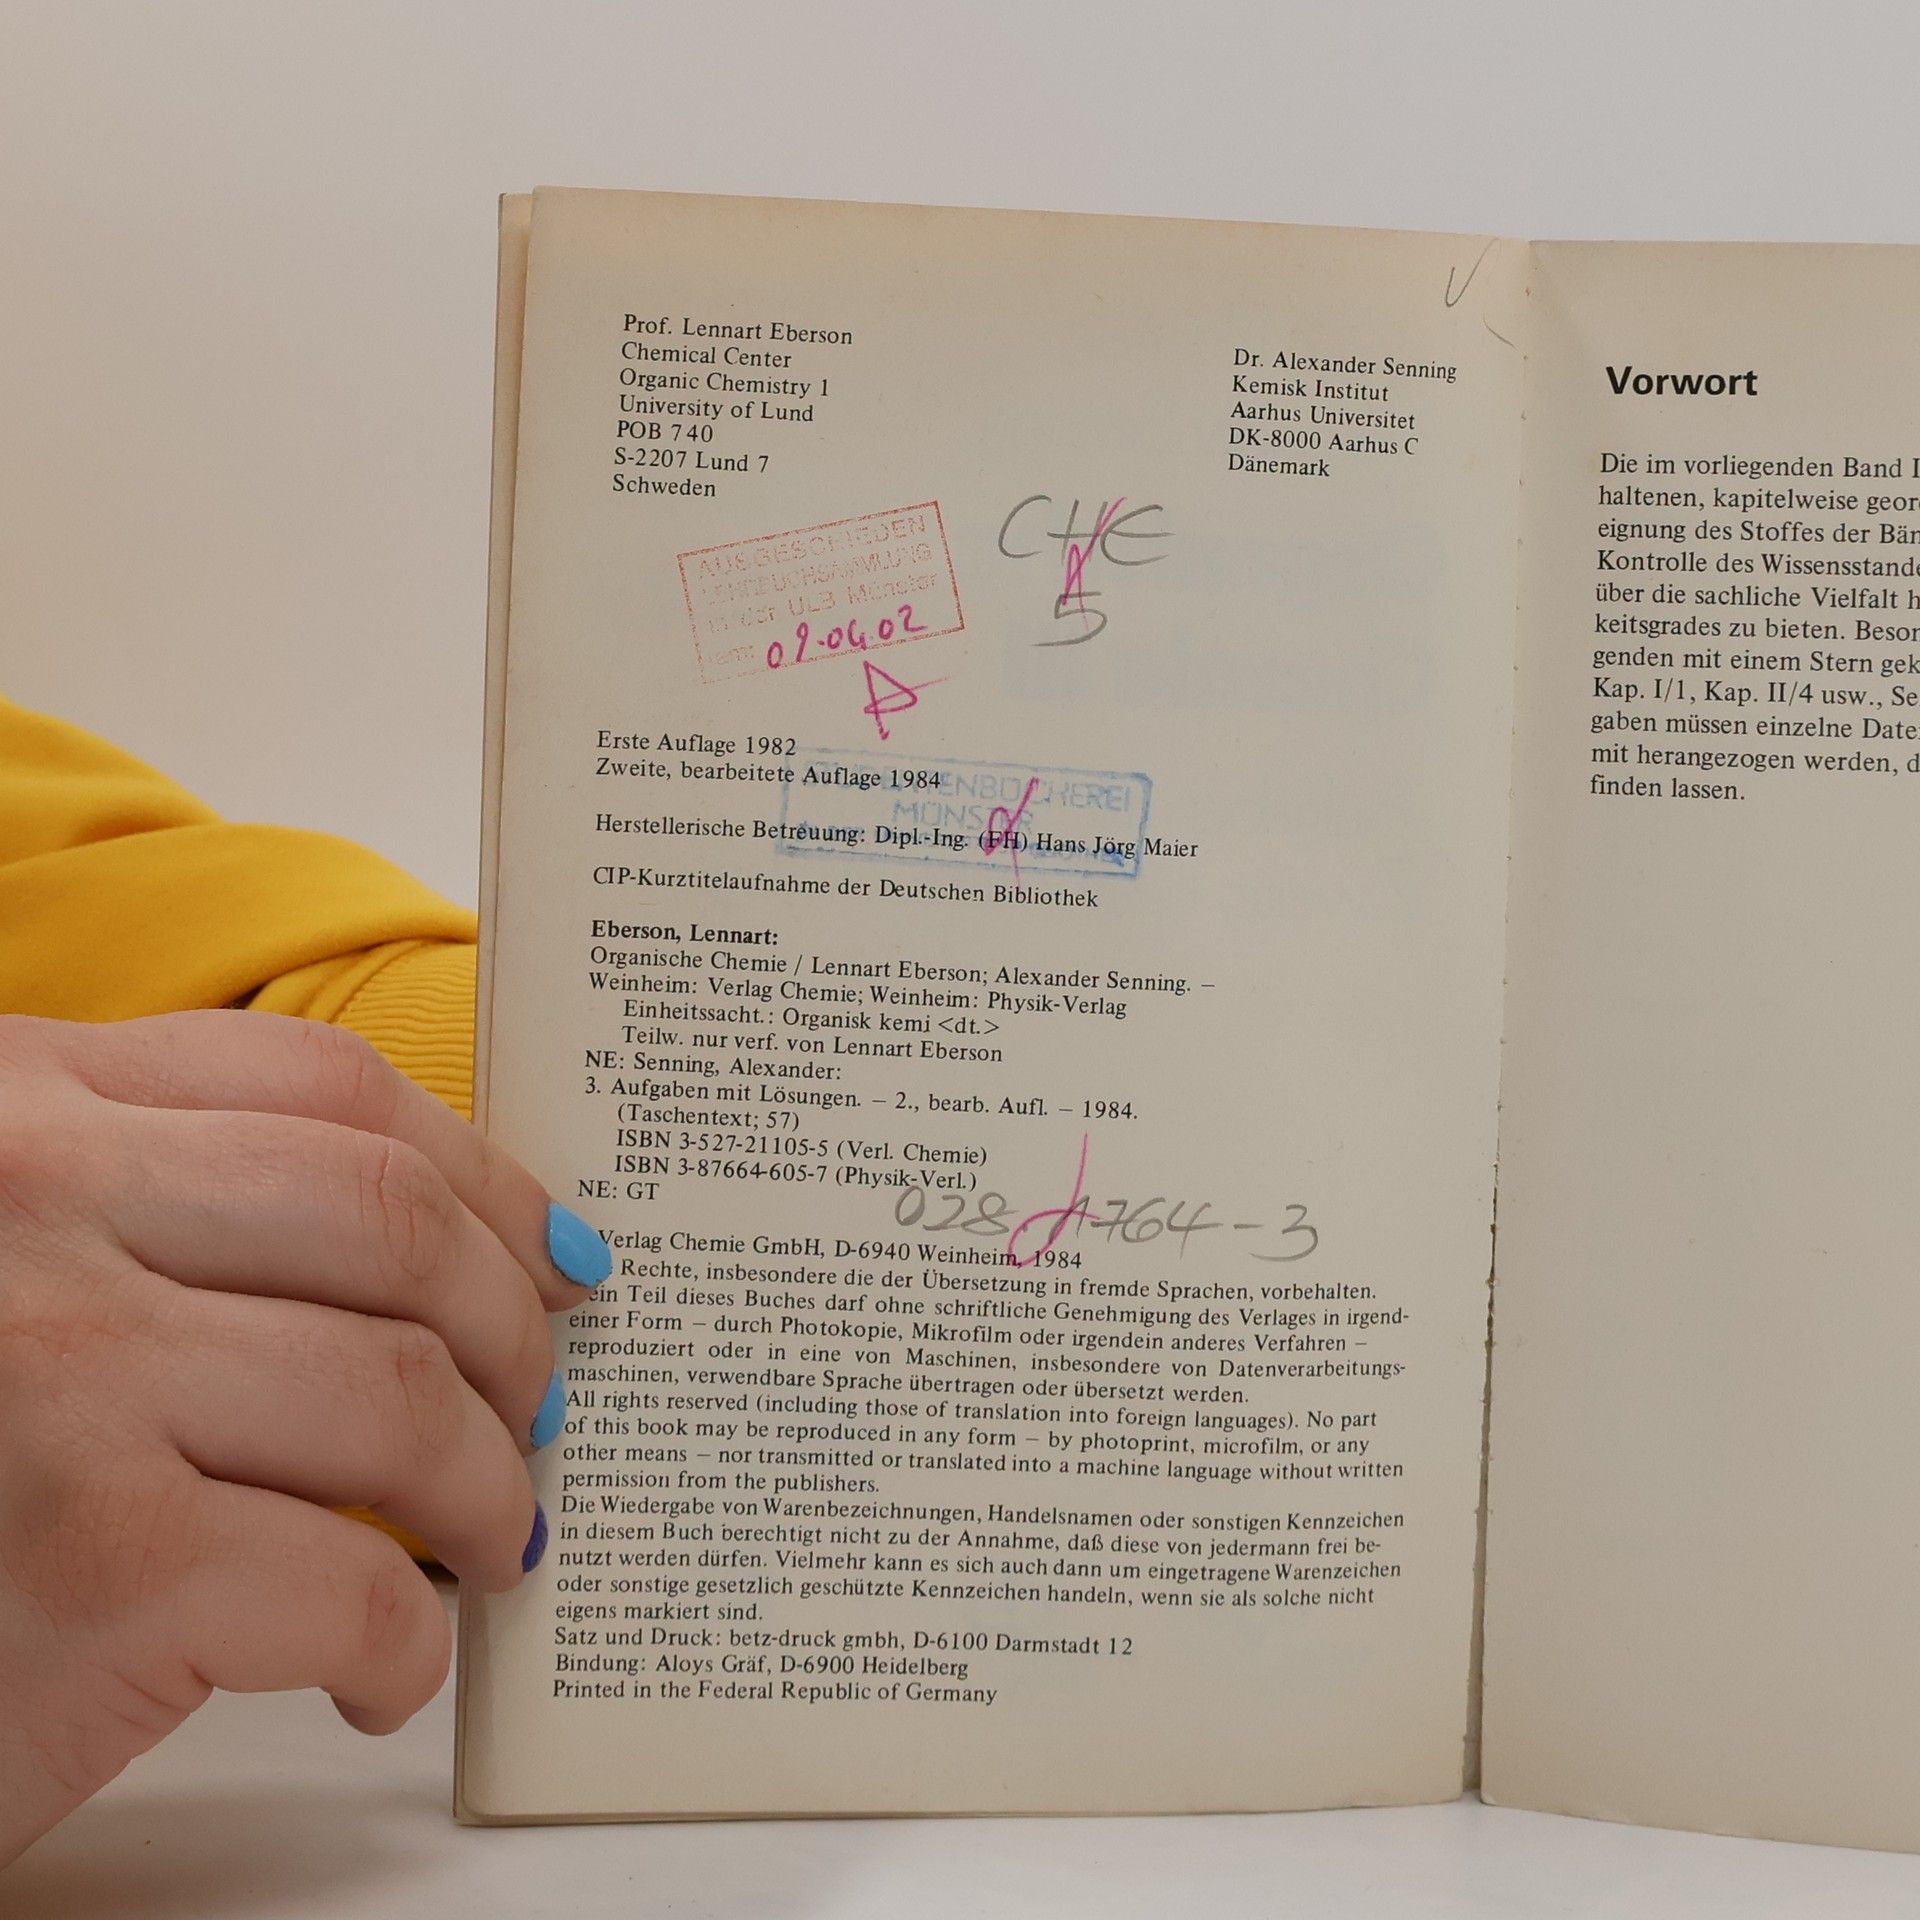 Prof. Lennart Eberson
Chemical Center
Organic Chemistry 1
University of Lund
POB 740
S-2207 Lund 7
Schweden
Dr. Alexander Senning
Kemisk Institut
Aarhus Universitet
DK-8000 Aarhus C
Dänemark
AUSGESCHIEDEN
LEHRBUCHSAMMLUNG
in der ULB Münster
am: 09.04.02
CHE
5
Erste Auflage 1982
Zweite, bearbeitete Auflage 1984
STUDENTENBÜCHEREI
MÜNSTER
Herstellerische Betreuung: Dipl.-Ing. (FH) Hans Jörg Maier
CIP-Kurztitelaufnahme der Deutschen Bibliothek
Eberson, Lennart:
Organische Chemie / Lennart Eberson; Alexander Senning. –
Weinheim: Verlag Chemie; Weinheim: Physik-Verlag
Einheitssacht.: Organisk kemi <dt.>
Teilw. nur verf. von Lennart Eberson
NE: Senning, Alexander:
3. Aufgaben mit Lösungen. – 2., bearb. Aufl. – 1984.
(Taschentext; 57)
ISBN 3-527-21105-5 (Verl. Chemie)
ISBN 3-87664-605-7 (Physik-Verl.)
NE: GT
028 1764-3
Verlag Chemie GmbH, D-6940 Weinheim, 1984
Rechte, insbesondere die der Übersetzung in fremde Sprachen, vorbehalten.
ein Teil dieses Buches darf ohne schriftliche Genehmigung des Verlages in irgend-
einer Form – durch Photokopie, Mikrofilm oder irgendein anderes Verfahren –
reproduziert oder in eine von Maschinen, insbesondere von Datenverarbeitungs-
maschinen, verwendbare Sprache übertragen oder übersetzt werden.
All rights reserved (including those of translation into foreign languages). No part
of this book may be reproduced in any form – by photoprint, microfilm, or any
other means – nor transmitted or translated into a machine language without written
permission from the publishers.
Die Wiedergabe von Warenbezeichnungen, Handelsnamen oder sonstigen Kennzeichen
in diesem Buch berechtigt nicht zu der Annahme, daß diese von jedermann frei be-
nutzt werden dürfen. Vielmehr kann es sich auch dann um eingetragene Warenzeichen
oder sonstige gesetzlich geschützte Kennzeichen handeln, wenn sie als solche nicht
eigens markiert sind.
Satz und Druck: betz-druck gmbh, D-6100 Darmstadt 12
Bindung: Aloys Gräf, D-6900 Heidelberg
Printed in the Federal Republic of Germany
Vorwort
Die im vorliegenden Band I
haltenen, kapitelweise geor
eignung des Stoffes der Bän
Kontrolle des Wissensstande
über die sachliche Vielfalt h
keitsgrades zu bieten. Beson
genden mit einem Stern gek
Kap. I/1, Kap. II/4 usw., Se
gaben müssen einzelne Date
mit herangezogen werden, d
finden lassen.